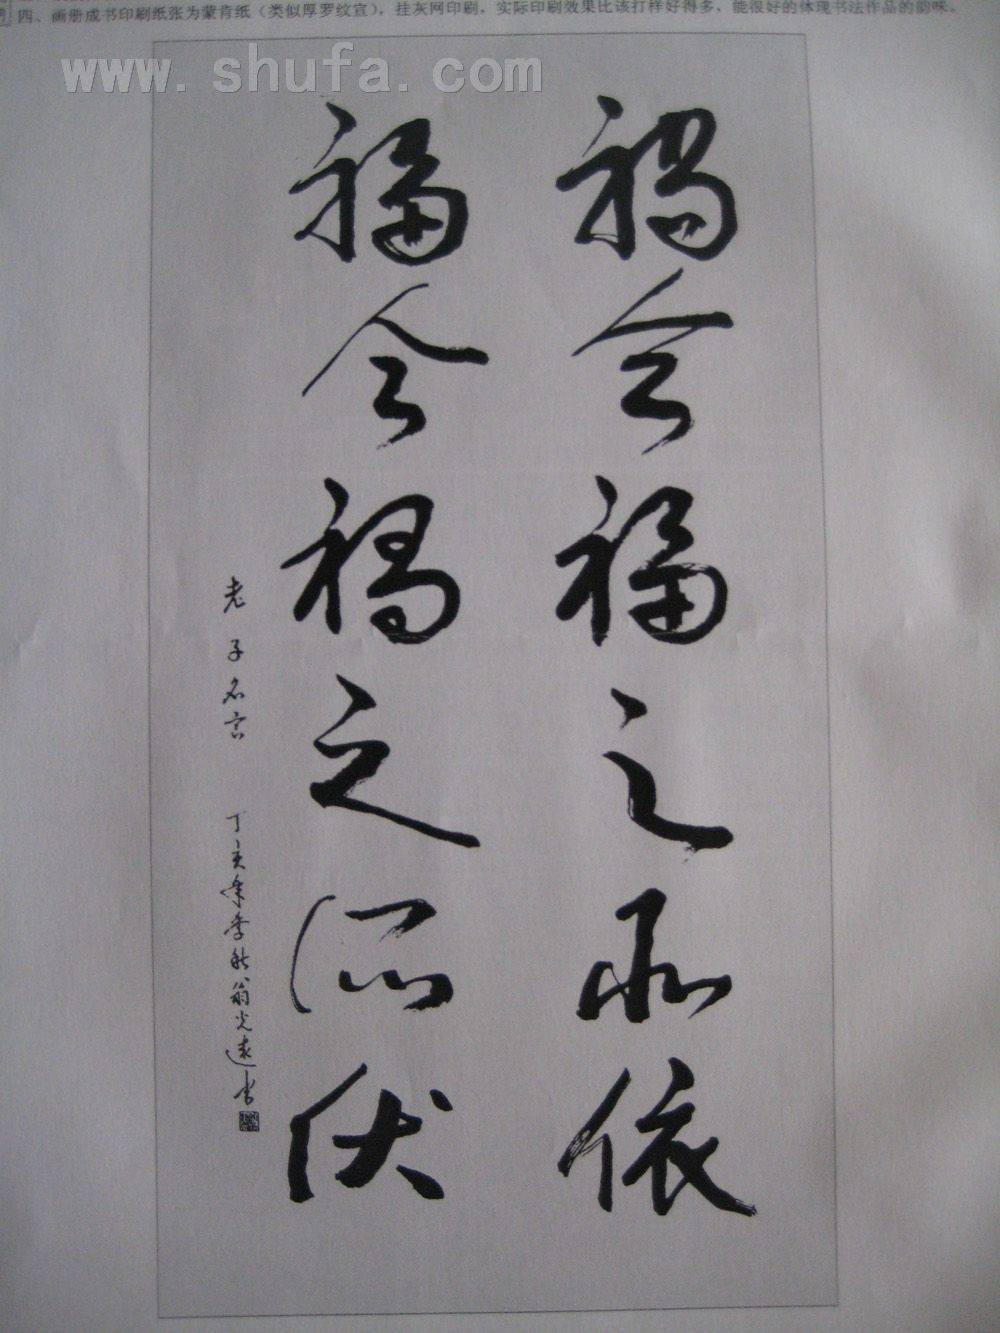 四、画册成书印刷纸张为蒙肯纸（类似厚罗纹宣），挂灰网印刷，实际印刷效果比该打样好得多，能很好的体现书法作品的韵味。
www.shufa.com
禍兮福之所依
福兮禍之所伏
老子名言 丁亥年季秋翁光遠书